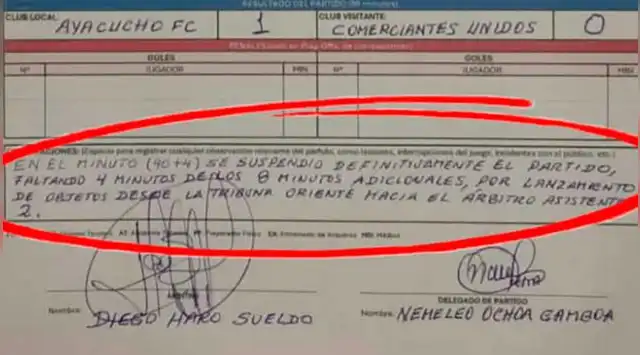 RESULTADO DEL PARTIDO (90 minutos)
CLUB LOCAL: AYACUCHO FC 1 CLUB VISITANTE: COMERCIANTES UNIDOS 0
GOLES GOLES
Nº JUGADOR MIN. Nº JUGADOR MIN.
(Espacio para registrar cualquier observación relevante del partido, como lesiones, interrupciones del juego, incidentes con el público, etc.)
EN EL MINUTO (90+4) SE SUSPENDIO DEFINITIVAMENTE EL PARTIDO,
FALTANDO 4 MINUTOS DE LOS 8 MINUTOS ADICIONALES, POR LANZAMIENTO
DE OBJETOS DESDE LA TRIBUNA ORIENTE HACIA EL ÁRBITRO ASISTENTE
2.
DELEGADO DE PARTIDO
Nombre: DIEGO HARO SUELDO Nombre: NEMELEO OCHOA GAMBOA